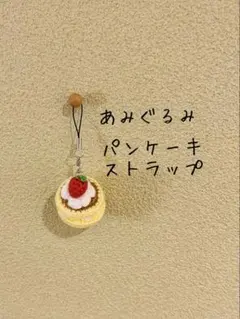 あみぐるみ
パンケーキ
ストラップ